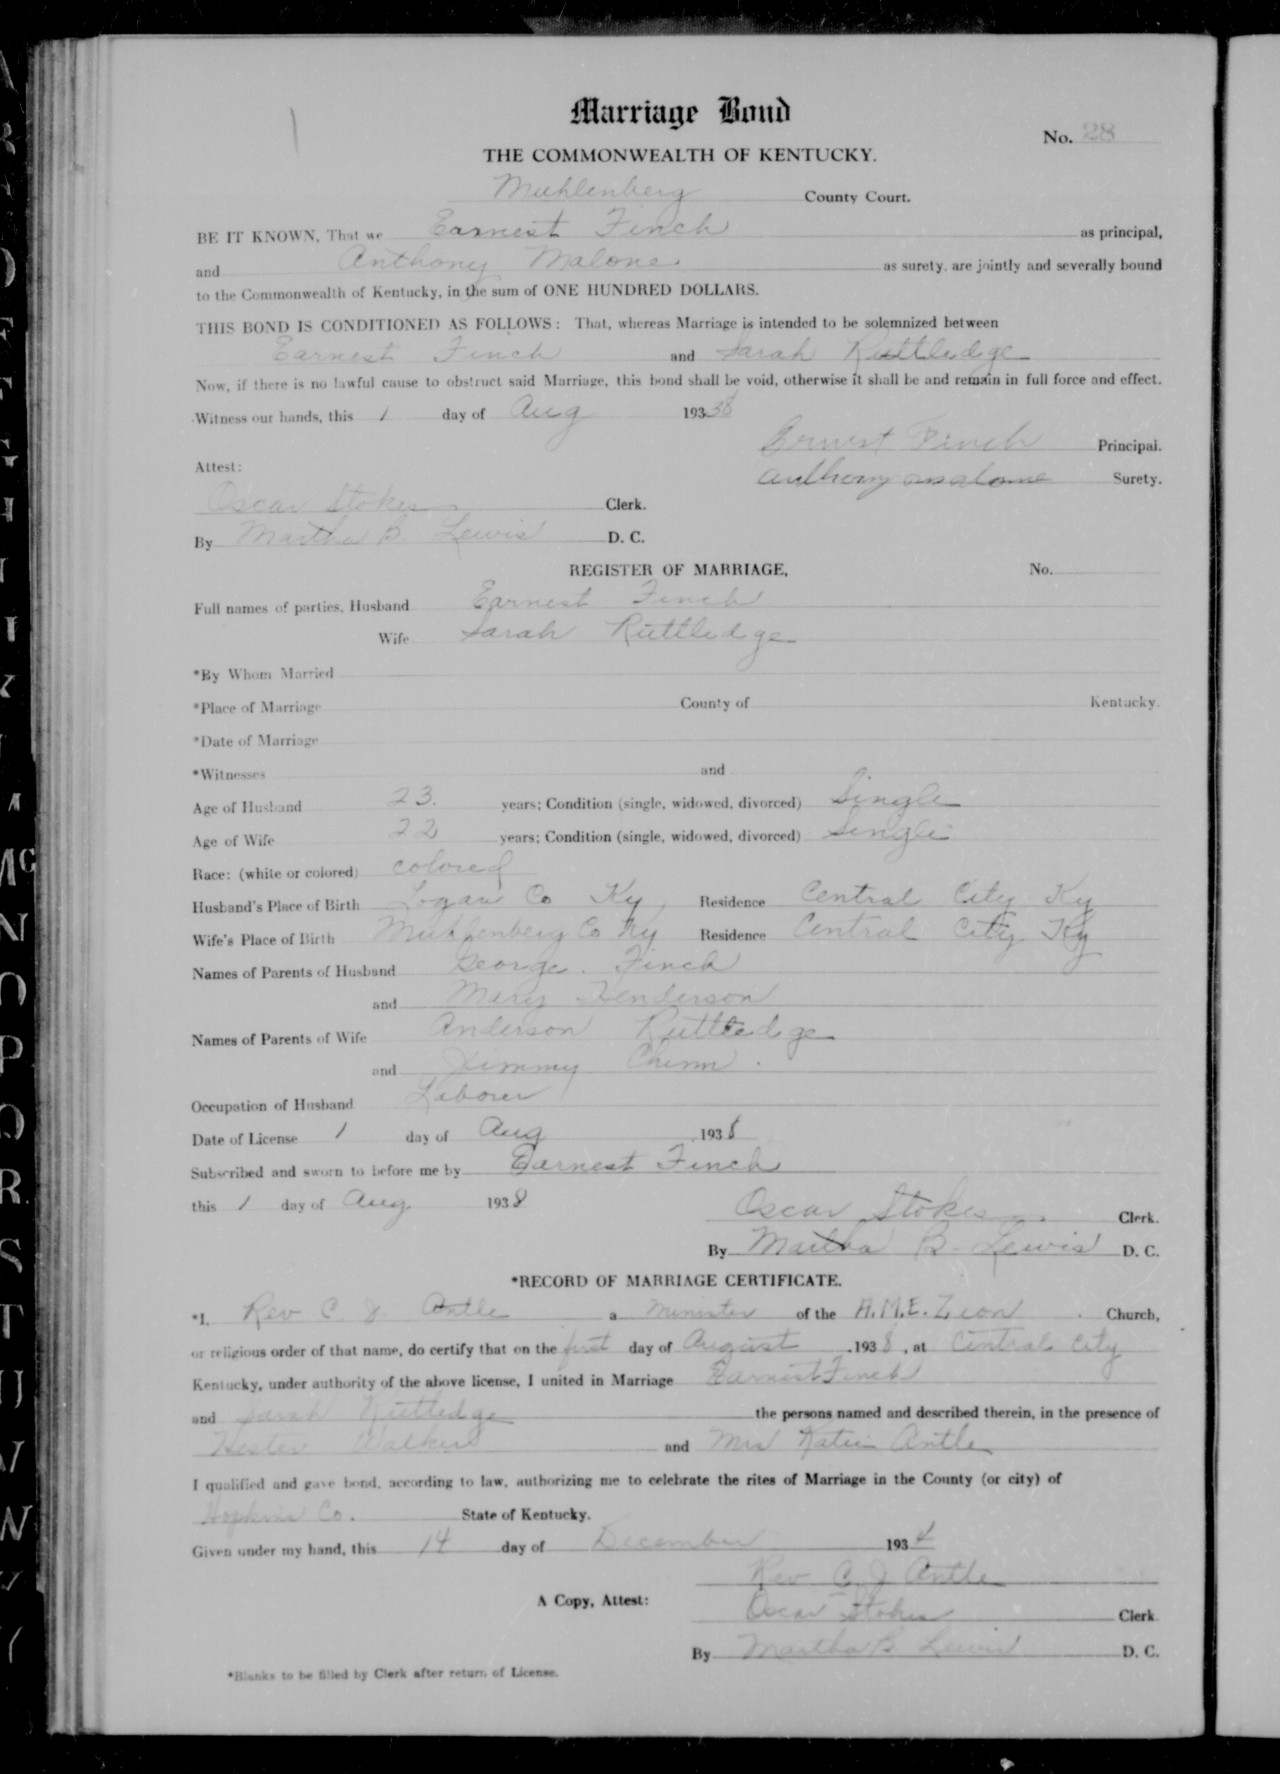 Marriage Bond
No. 28
THE COMMONWEALTH OF KENTUCKY.
Muhlenberg County Court.
BE IT KNOWN, That we Earnest Finch as principal,
and Anthony Malone as surety, are jointly and severally bound
to the Commonwealth of Kentucky, in the sum of ONE HUNDRED DOLLARS.
THIS BOND IS CONDITIONED AS FOLLOWS: That, whereas Marriage is intended to be solemnized between
Earnest Finch and Sarah Ruttledge
Now, if there is no lawful cause to obstruct said Marriage, this bond shall be void, otherwise it shall be and remain in full force and effect.
Witness our hands, this 1 day of Aug 19338
Ernest Finch Principal.
Attest:
Anthony Malone Surety.
Oscar Stokes Clerk.
By Martha B. Lewis D. C.
REGISTER OF MARRIAGE, No.
Full names of parties, Husband Earnest Finch
Wife Sarah Ruttledge
*By Whom Married
*Place of Marriage County of Kentucky.
*Date of Marriage
*Witnesses and
Age of Husband 23. years; Condition (single, widowed, divorced) Single
Age of Wife 22 years; Condition (single, widowed, divorced) Single
Race: (white or colored) colored
Husband's Place of Birth Logan Co Ky, Residence Central City Ky
Wife's Place of Birth Muhlenberg Co Ky Residence Central City Ky
Names of Parents of Husband George. Finch
and Mary Henderson
Names of Parents of Wife Anderson Ruttledge
and Jimmy Chinn.
Occupation of Husband Laborer
Date of License 1 day of Aug 1938
Subscribed and sworn to before me by Earnest Finch
this 1 day of Aug 1938
Oscar Stokes Clerk.
By Martha B. Lewis D. C.
*RECORD OF MARRIAGE CERTIFICATE.
*I, Rev C. J. Antle a minister of the A.M.E. Zion Church,
or religious order of that name, do certify that on the first day of August , 1938, at Central City
Kentucky, under authority of the above license, I united in Marriage Earnest Finch
and Sarah Rutledge the persons named and described therein, in the presence of
Hester Walker and Mrs Katie Antle
I qualified and gave bond, according to law, authorizing me to celebrate the rites of Marriage in the County (or city) of
Hopkins Co. State of Kentucky.
Given under my hand, this 14 day of December 1934
Rev C J Antle
A Copy, Attest:
Oscar Stokes Clerk
By Martha B. Lewis D. C.
*Blanks to be filled by Clerk after return of License.